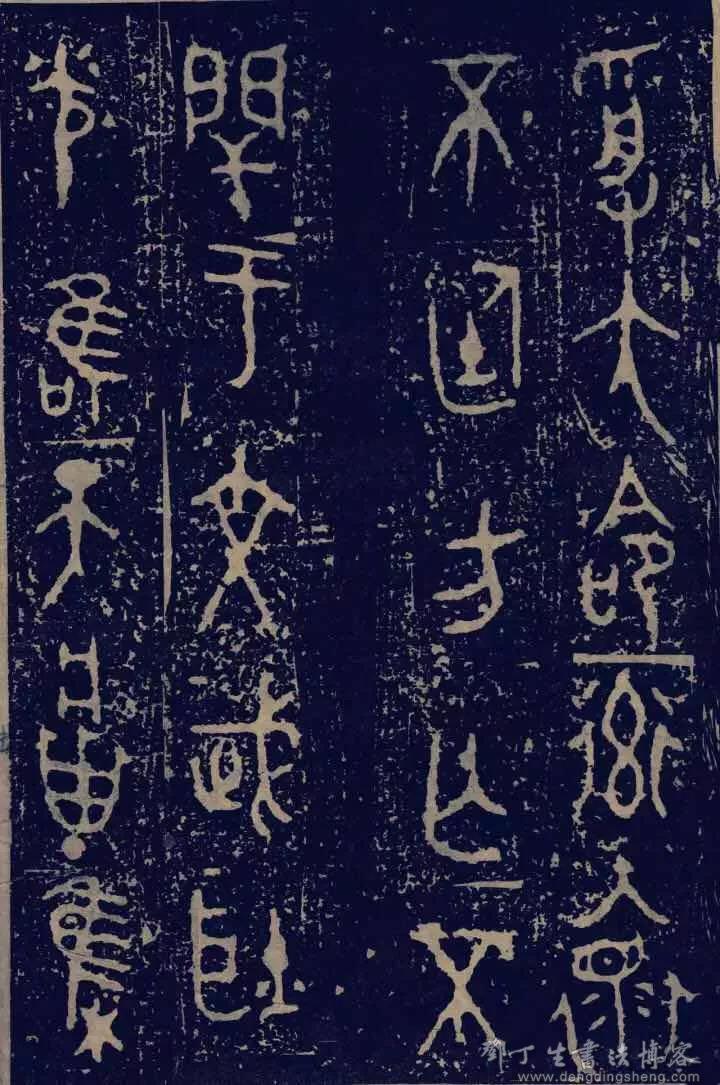 受大命率褱
不廷方亡不
閈于文武耿
光唯天集
鄧丁生書法博客
www.dengdingsheng.com